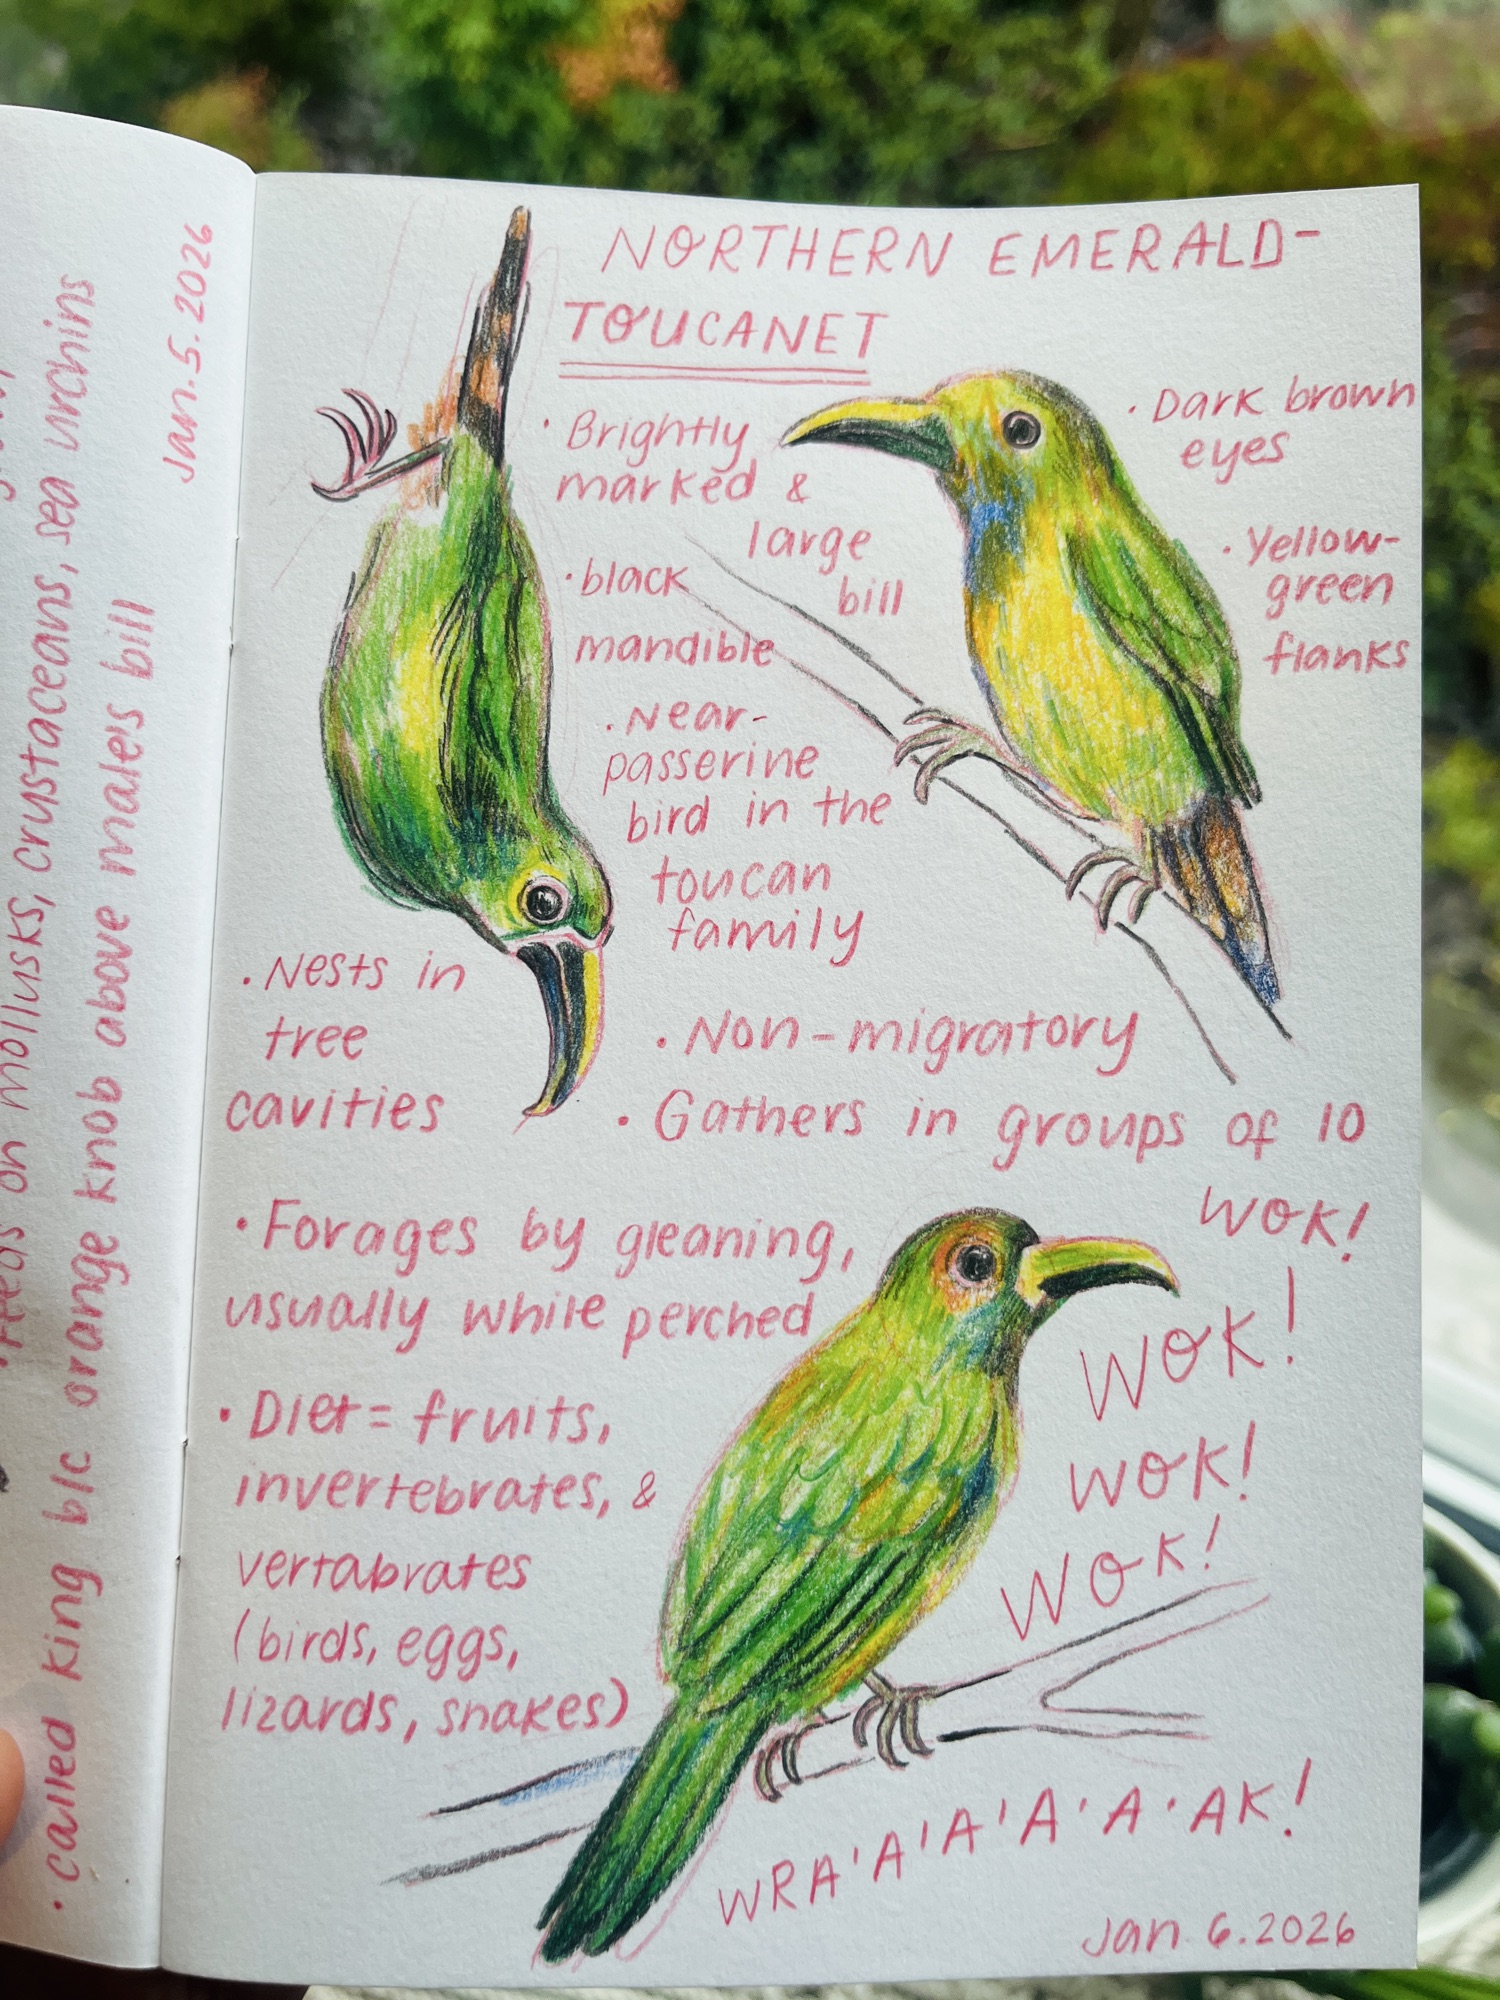 Feeds on mollusks, crustaceans, sea urchins
• called king b/c orange knob above male's bill
Jan. 5. 2026
NORTHERN EMERALD-
TOUCANET
• Brightly
marked &
large
bill
• black
mandible
• Near-
passerine
bird in the
toucan
family
• Dark brown
eyes
• Yellow-
green
flanks
• Nests in
tree
cavities
• Non-migratory
• Gathers in groups of 10
• Forages by gleaning,
usually while perched
• Diet = fruits,
invertebrates, &
vertabrates
(birds, eggs,
lizards, snakes)
WOK!
WOK!
WOK!
WOK!
WRA'A'A'A'A'AK!
Jan. 6. 2026